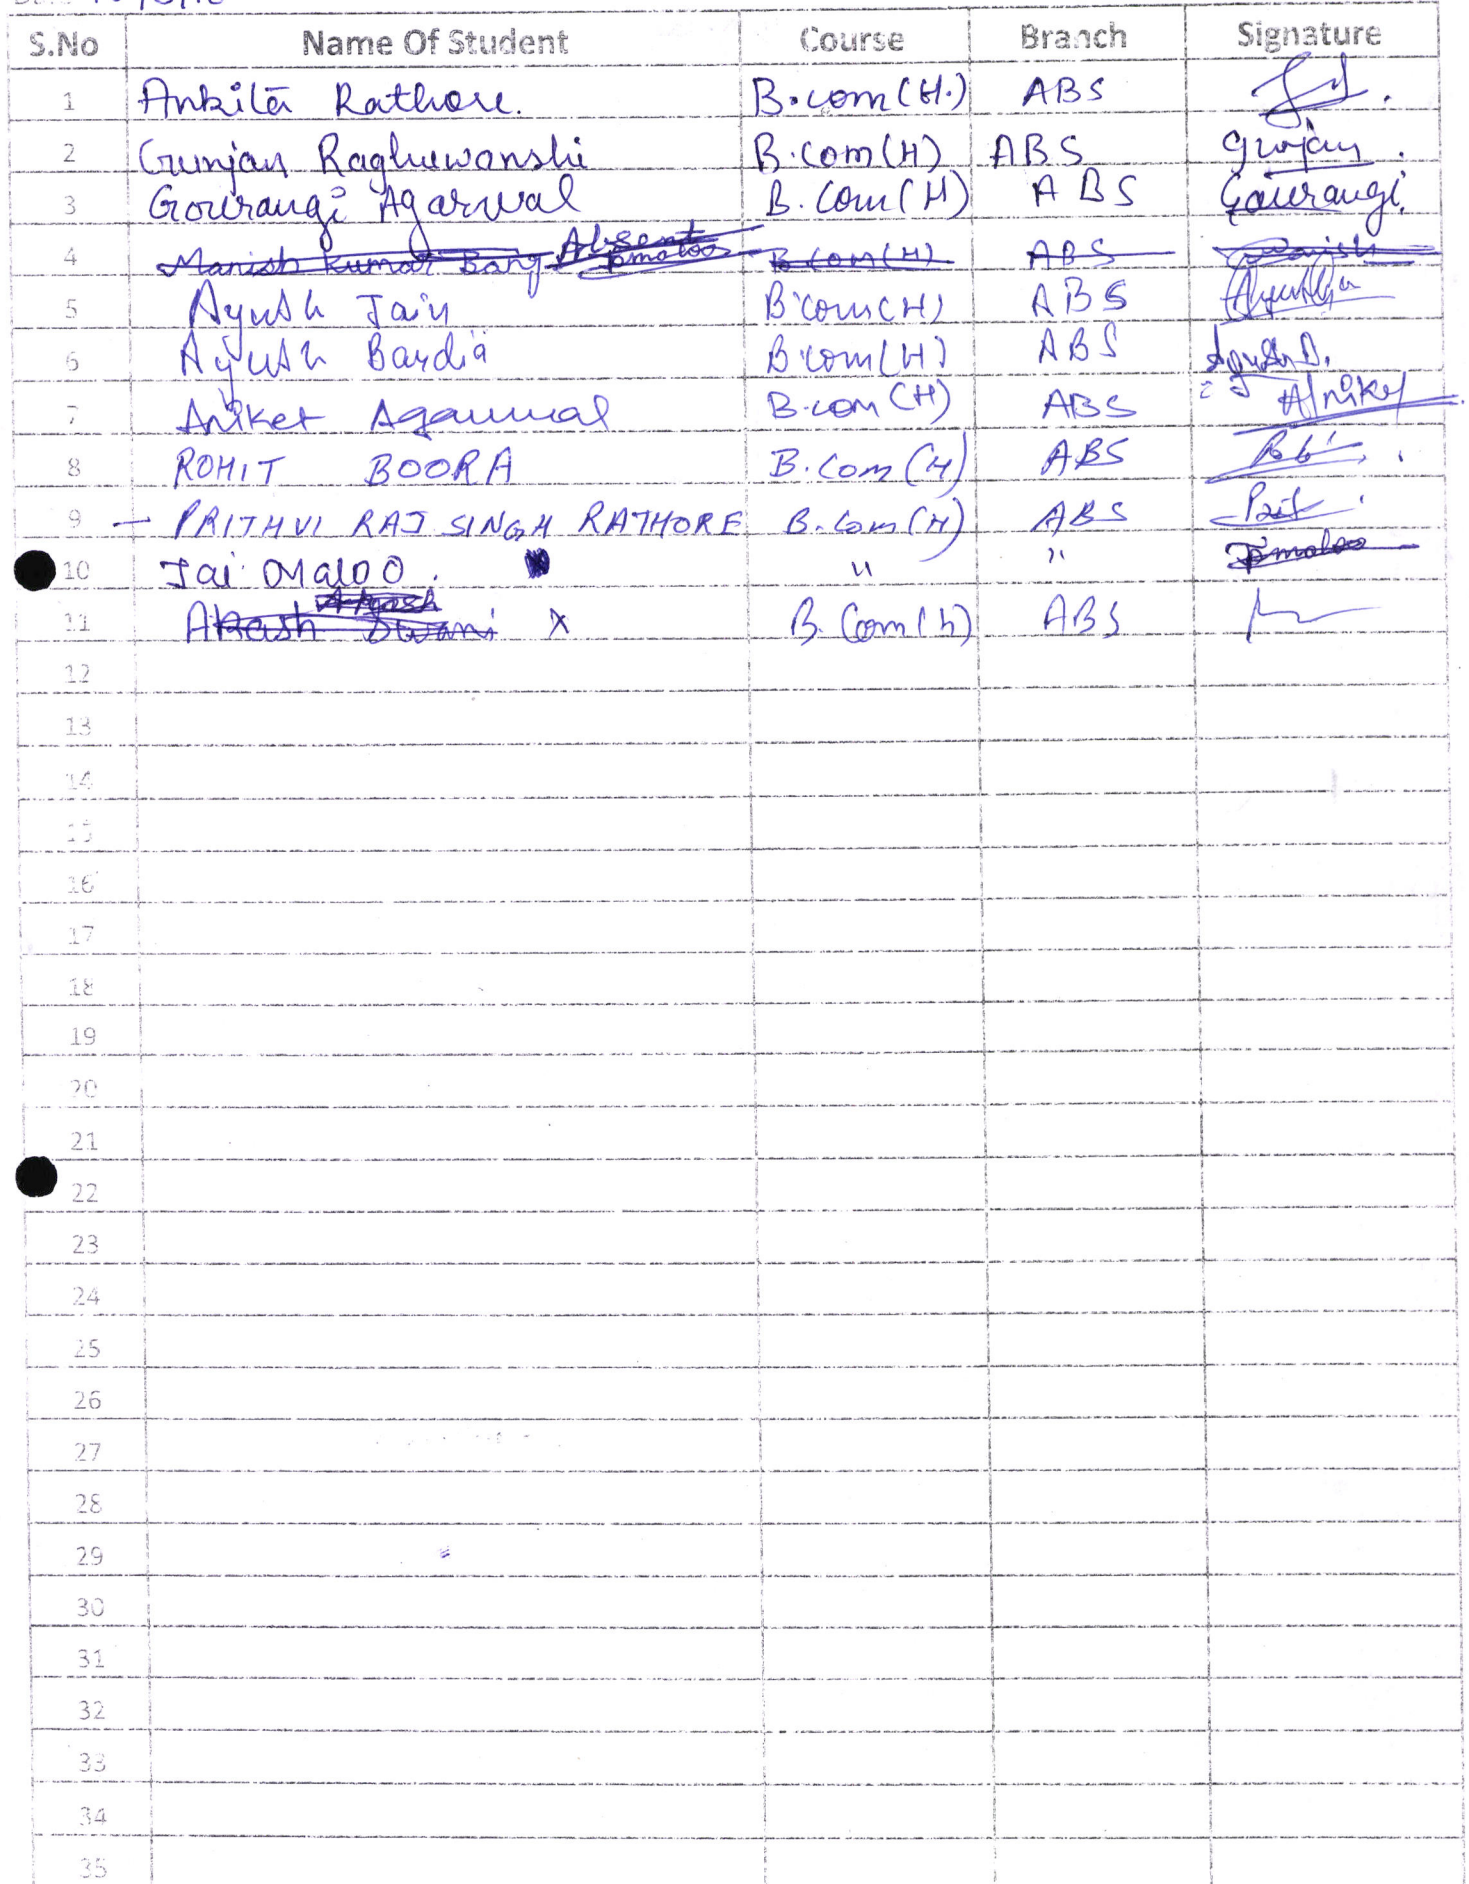 S.No Name Of Student Course Branch Signature
1 Ankita Rathore. B.com(H.) ABS
2 Gunjan Raghuwanshi B.com(H) ABS Gunjan.
3 Gourangi Agarwal B.Com(H) ABS Gourangi
4 Manish Kumar Bang Absent Jmaloo B.Com(H) ABS Manish
5 Ayush Jain B.com(H) ABS
6 Ayush Bardia B.com(H) ABS
7 Aniket Agarwal B.com(H) ABS Aniket
8 ROHIT BOORA B.Com(H) ABS
9 – PRITHVI RAJ SINGH RATHORE B.Com(H) ABS
10 Jai Maloo. " " Jmaloo
11 Akash Swani Akash x B.Com(h) ABS
12
13
14
15
16
17
18
19
20
21
22
23
24
25
26
27
28
29
30
31
32
33
34
35